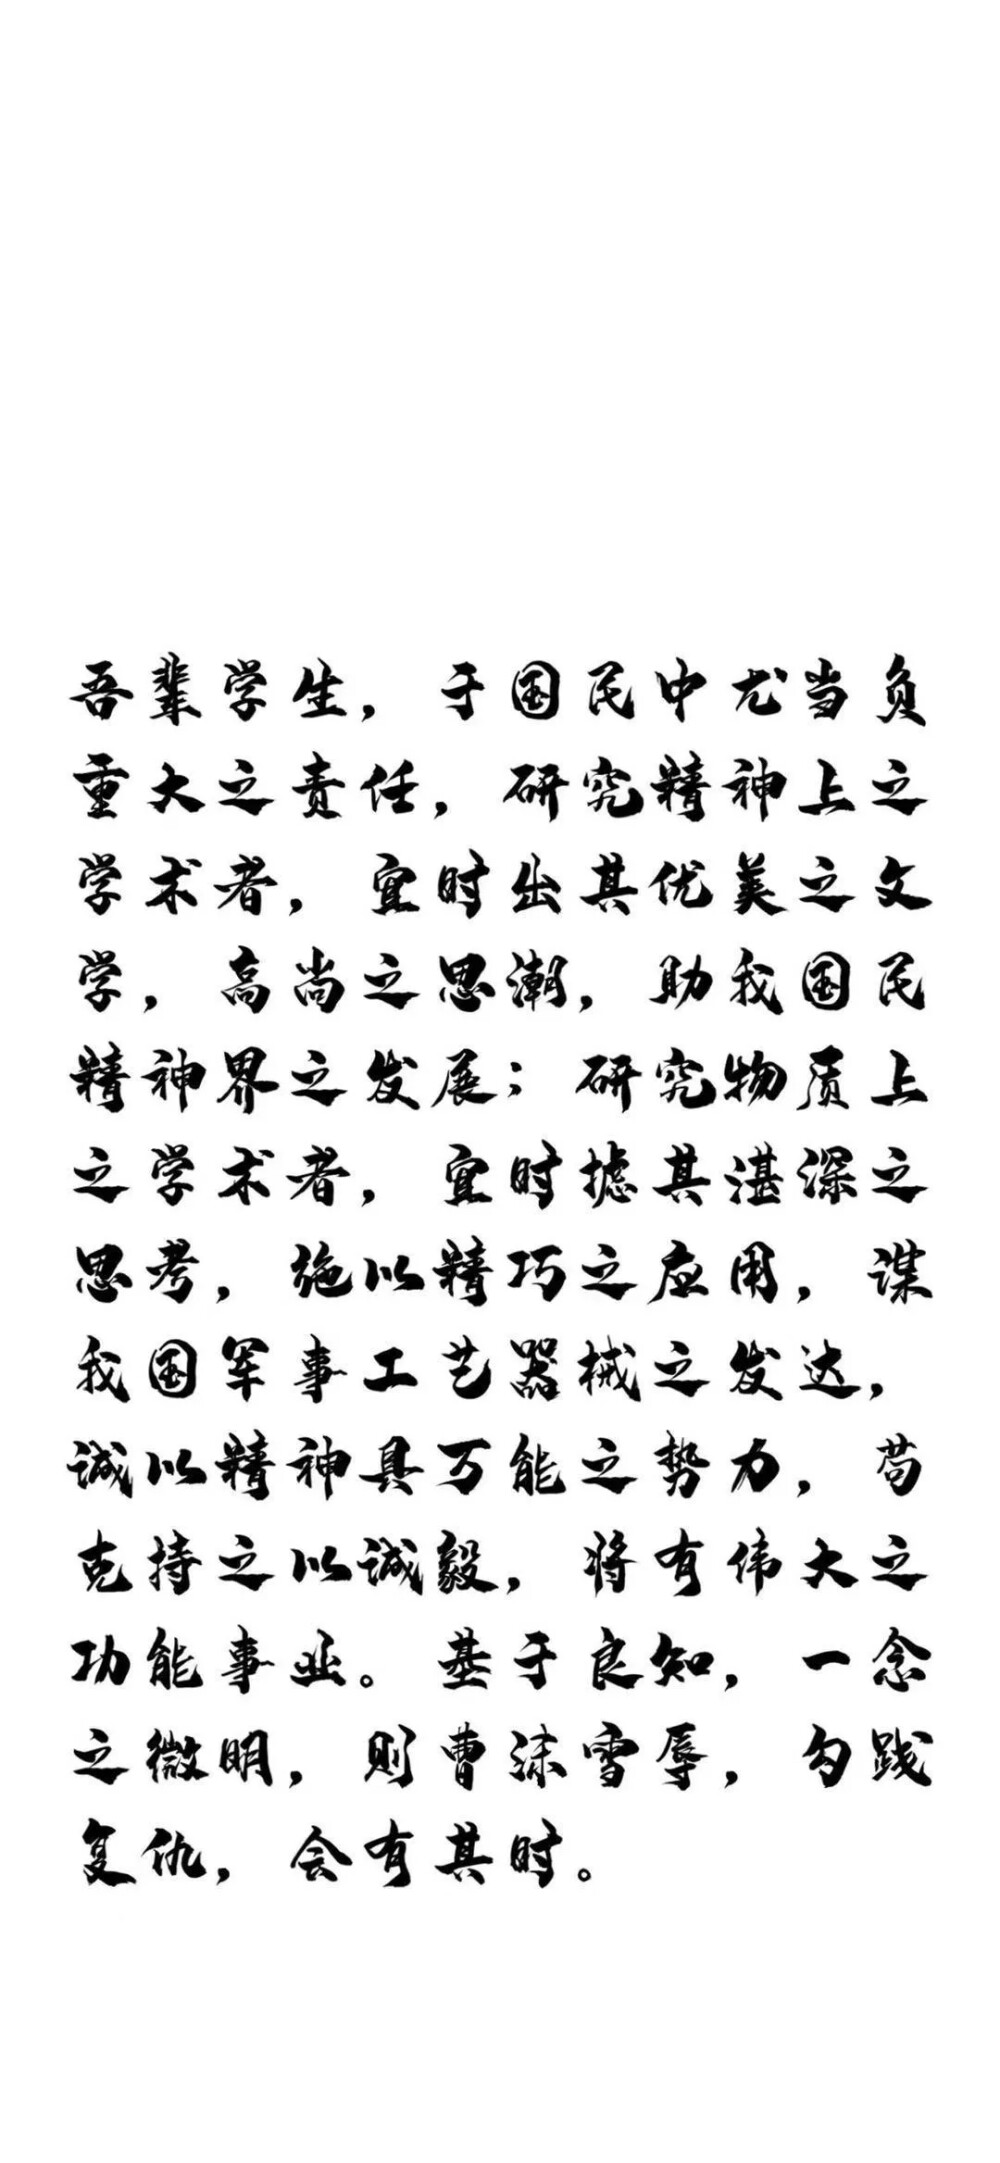 吾辈学生，于国民中尤当负
重大之责任，研究精神上之
学术者，宜时出其优美之文
学，高尚之思潮，助我国民
精神界之发展；研究物质上
之学术者，宜时摅其湛深之
思考，施以精巧之应用，谋
我国军事工艺器械之发达，
诚以精神具万能之势力，苟
克持之以诚毅，将有伟大之
功能事业。基于良知，一念
之微明，则曹沫雪辱，勾践
复仇，会有其时。